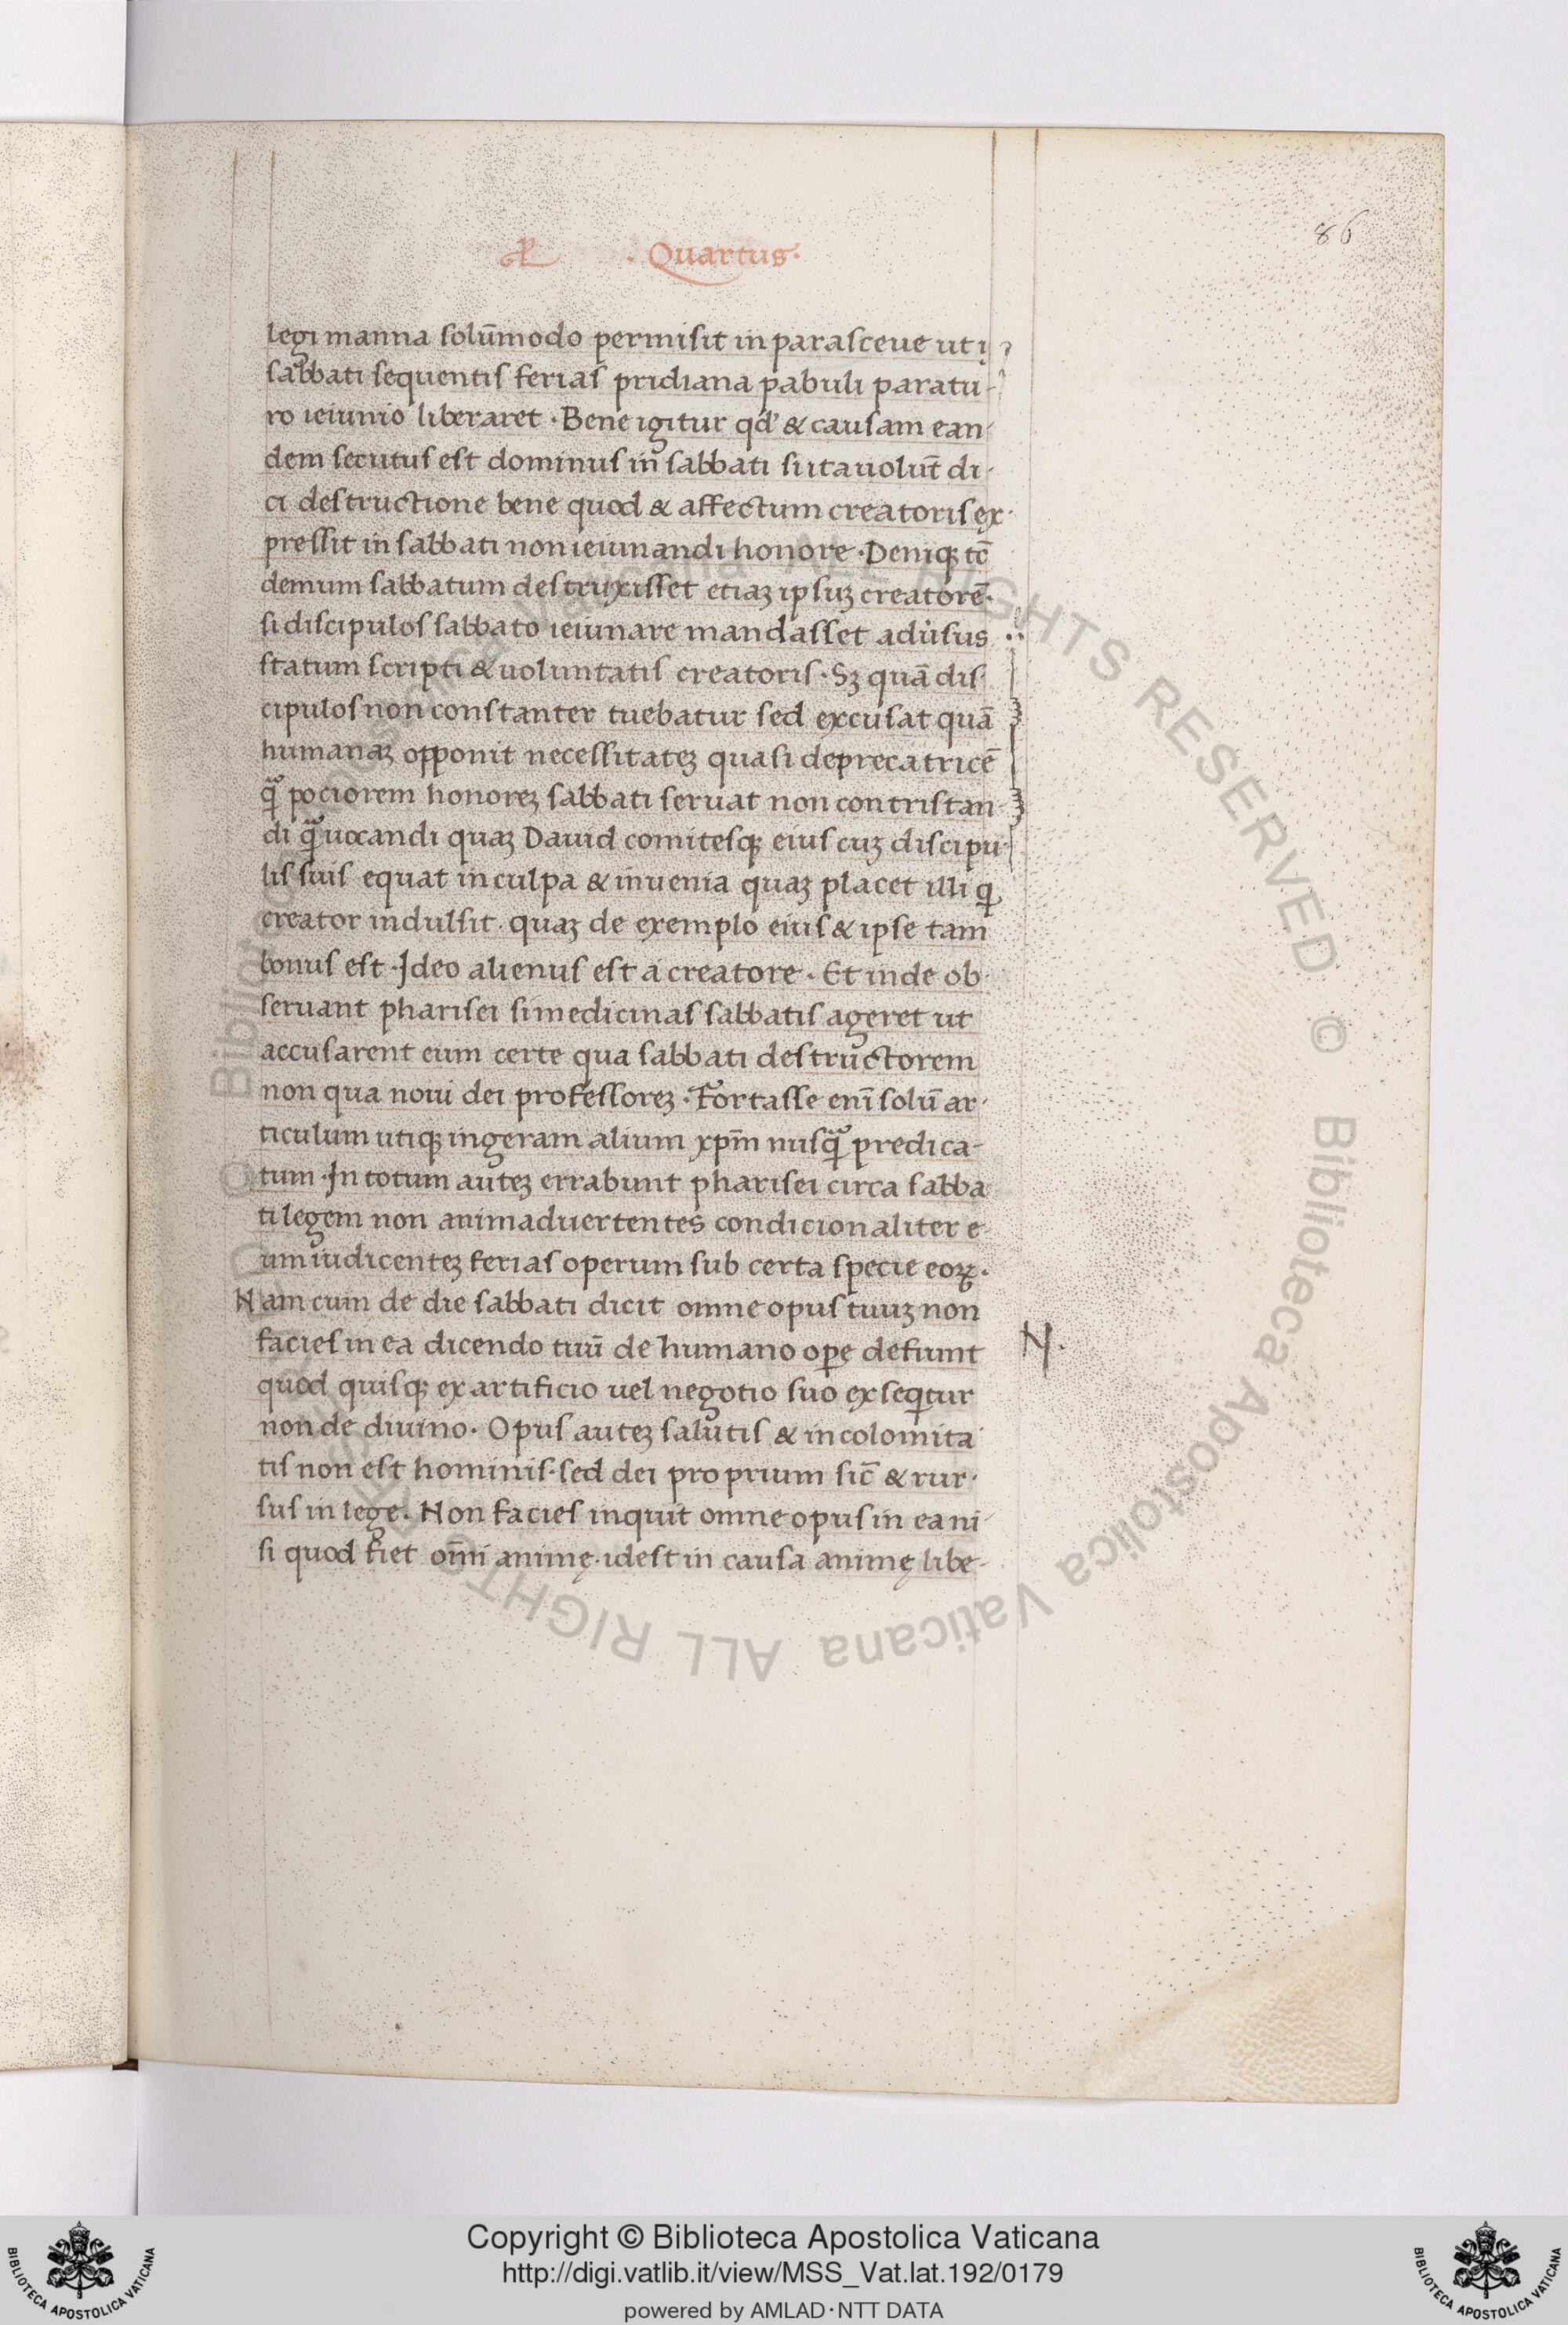 86
· Quartus ·
legi manna solūmodo permisit in parasceue ut ı
sabbati sequentis ferias pridiana pabuli paratu-
ro ieiunio liberaret · Bene igitur qd' & causam ean-
dem secutus est dominus in sabbati si ita uolūt di-
ci destructione bene quod & affectum creatoris ex-
pressit in sabbati non ieiunandi honore · Deniqꝫ tc̄
demum sabbatum destruxisset etiaꝫ ipsuꝫ creatorē ·
si discipulos sabbato ieiunare mandasset adu̇sus
statum scripti & uoluntatis creatoris · Sꝫ quā dis-
cipulos non constanter tuebatur sed excusat quā
humanaꝫ opponit necessitateꝫ quasi deprecatricē
qᷓ pociorem honoreꝫ sabbati seruat non contristan-
di qᷓ uocandi quaꝫ Dauid comitesqꝫ eius cuꝫ discipu-
lis suis equat in culpa & in uenia quaꝫ placet illi q
creator indulsit · quaꝫ de exemplo eius & ipse tam
bonus est · Ideo alienus est a creatore · Et inde ob-
seruant pharisei si medicinas sabbatis ageret ut
accusarent eum certe qua sabbati destructorem
non qua noui dei professoreꝫ · Fortasse enī solū ar-
ticulum utiqꝫ ingeram alium xp̄m nusqᷓ predica-
tum · In totum auteꝫ errabunt pharisei circa sabba
ti legem non animaduertentes condicionaliter e-
um iudicenteꝫ ferias operum sub certa specie eoꝝ ·
Nam cum de die sabbati dicit omne opus tuuꝫ non
facies in ea dicendo tuū de humano oꝑe defiunt
N.
quod quisqꝫ ex artificio uel negotio suo exseqͥtur
non de diuino · Opus auteꝫ salutis & incolomita
tis non est hominis · sed dei proprium sic̄ & rur-
sus in lege · Non facies inquit omne opus in ea ni
si quod fiet om̄i animę · idest in causa animę libe-
Copyright © Biblioteca Apostolica Vaticana
http://digi.vatlib.it/view/MSS_Vat.lat.192/0179
powered by AMLAD · NTT DATA
BIBLIOTECA APOSTOLICA VATICANA
BIBLIOTECA APOSTOLICA VATICANA
© Biblioteca Apostolica Vaticana ALL RIGHTS RESERVED